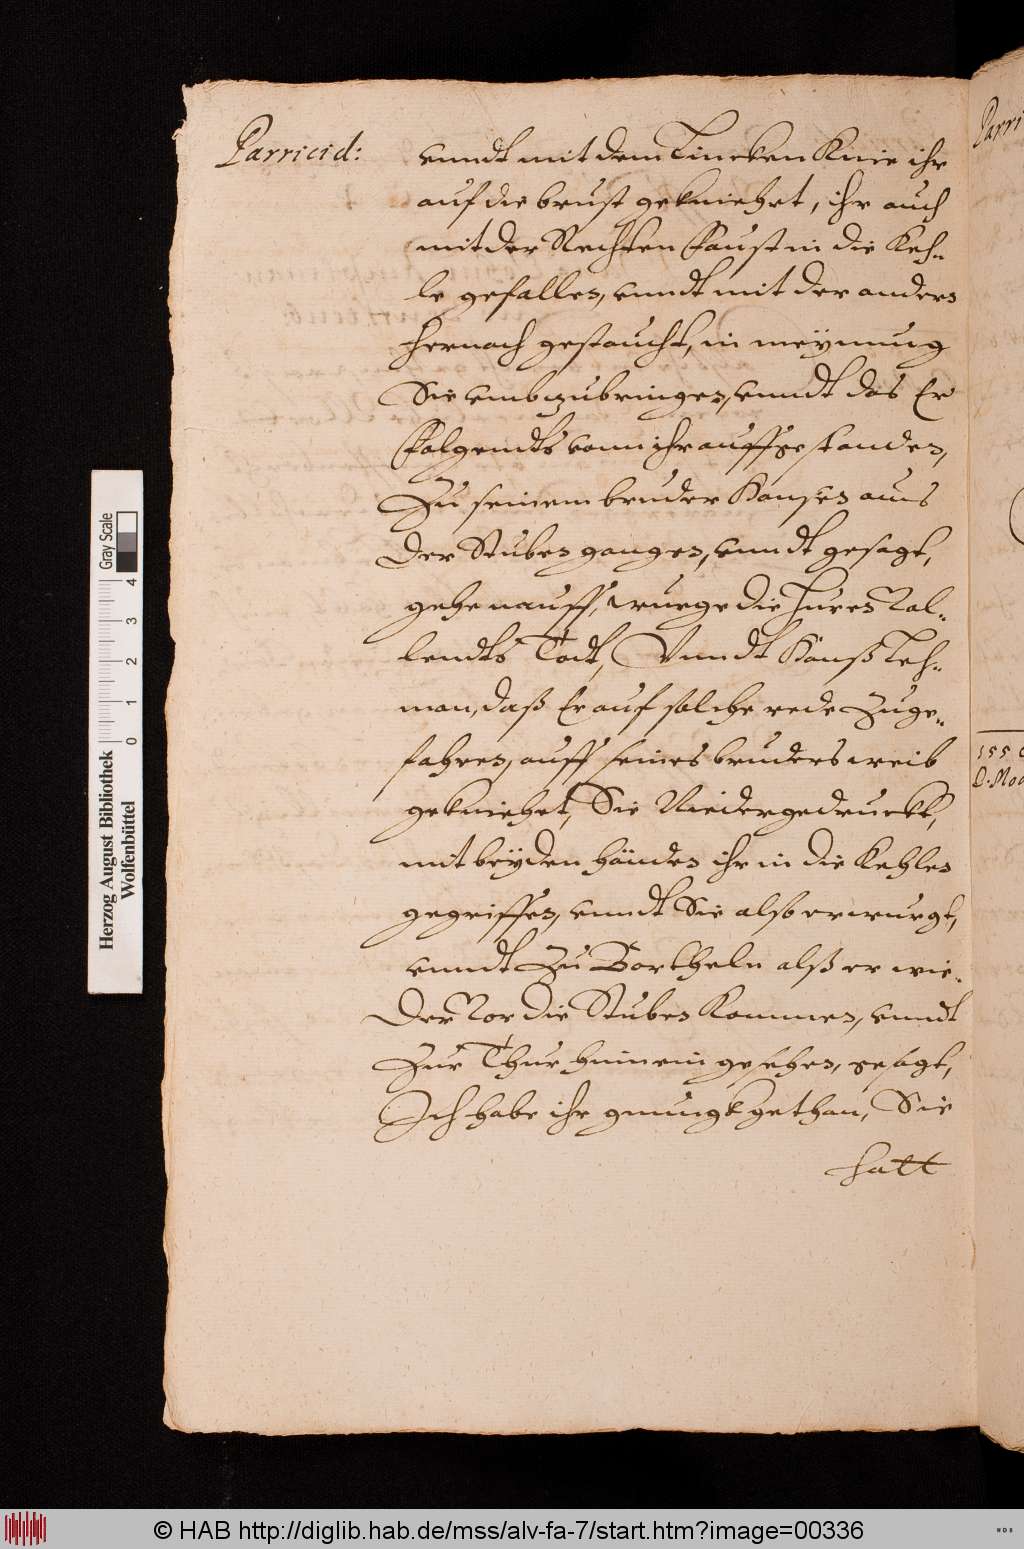 Parricid:
unndt mit dem Lincken Knie ihr
auf die brust gekniehet, ihr auch
mit der Rechten Faust in die Keh-
le gefallen, unndt mit der andern
hernach gestaucht, in meÿnung
Sie umbzubringen, unndt das Er
Folgendts vonn ihr auffgestanden,
Zu seinem bruder Hansen aus
der Stuben gangen, unndt gesagt,
gehe nauff, wurge die Huren Vol-
lendts Todt, Vnndt Hanß Leh-
man, daß Er auf solche rede Zuge-
fahren, auff seines bruders weib
gekniehet, Sie Niedergedruckt,
mit beÿden händen ihr in die Kehlen
gegriffen, unndt Sie also erwurgt,
unndt Zu Bartheln alß er wie-
der Vor die Stuben Kommen, unndt
Zur Thur hinnein gesehen, gesagt,
Ich habe ihr gnungk gethan, Sie
hatt
Parri
155
Herzog August Bibliothek
Wolfenbüttel
Gray Scale
0 1 2 3 4
© HAB http://diglib.hab.de/mss/alv-fa-7/start.htm?image=00336